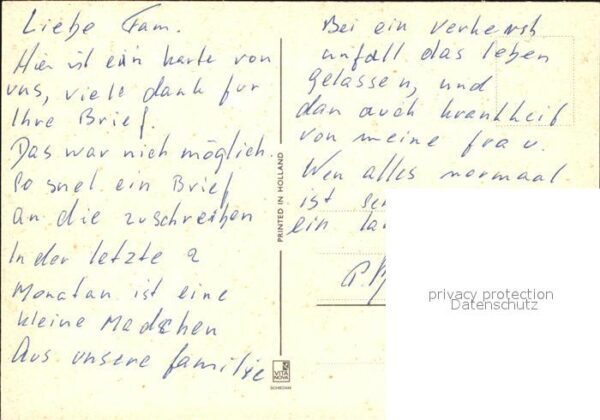 Liebe Fam.
Hier ist ein karte von
uns, viele dank für
Ihre Brief.
Das war nich möglich
so snel ein Brief
an die zuschreiben
In der letzte 2
Monatan ist eine
kleine Madchen
Aus unsere familije
Bei ein verkerst
unfall das leben
gelassen, und
dan auch krankheit
von meine frau.
Wen alles normaal
ist
ein
PRINTED IN HOLLAND
VITA NOVA
SCHIEDAM
privacy protection
Datenschutz